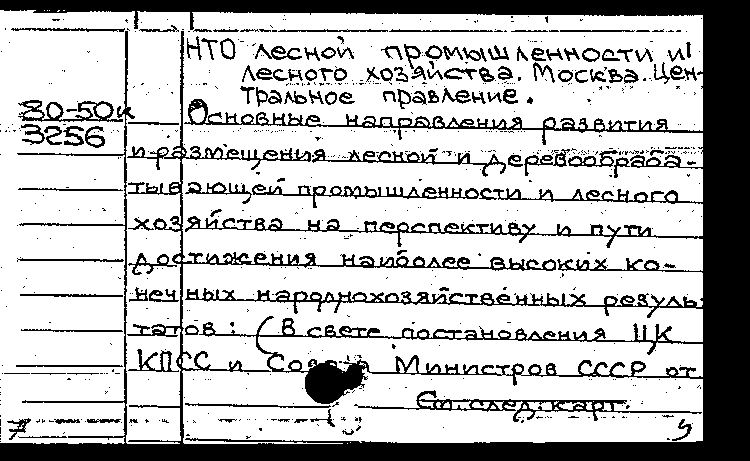 НТО лесной промышленности и
лесного хозяйства. Москва. Цен-
тральное правление.
80-50к
3256
Основные направления развития
и размещения лесной и деревообраба-
тывающей промышленности и лесного
хозяйства на перспективу и пути
достижения наиболее высоких ко-
нечных народнохозяйственных резуль-
татов: (В свете постановления ЦК
КПСС и Совета Министров СССР от
См. след. карт.